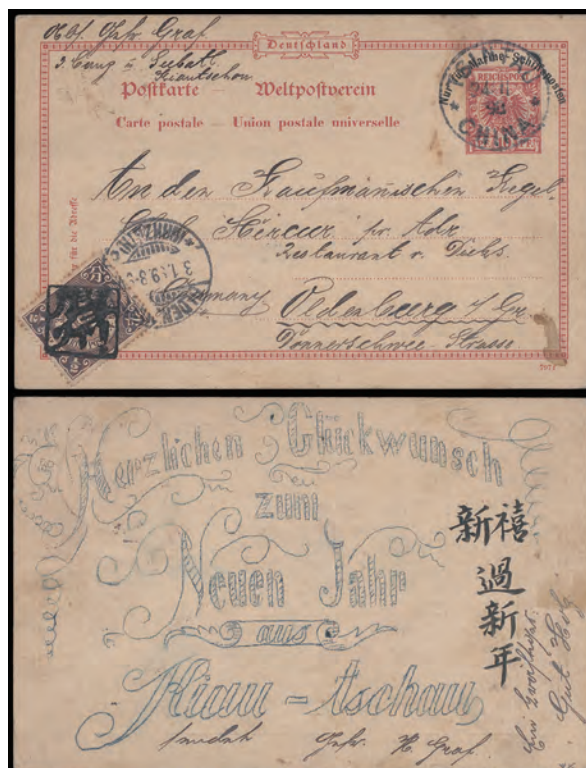 Abs. Gefr. Graf
3. Comp. u. Seebatl.
Kiautschou
Deutschland
Postkarte — Weltpostverein
Carte postale — Union postale universelle
Nur für Marine-Schiffsposten
REICHSPOST
CHINA
An den Kaufmännischen Kegel-
Club Mercur pr. Adr.
Restaurant v. Dichs.
Germany Oldenburg i/Gr.
Donnerschwee-Strasse
für die Adresse
Herzlichen Glückwunsch
zum
Neuen Jahr
aus
Kiau-tschau
sendet Gefr. H. Graf
新禧
過新年
Gut Holz